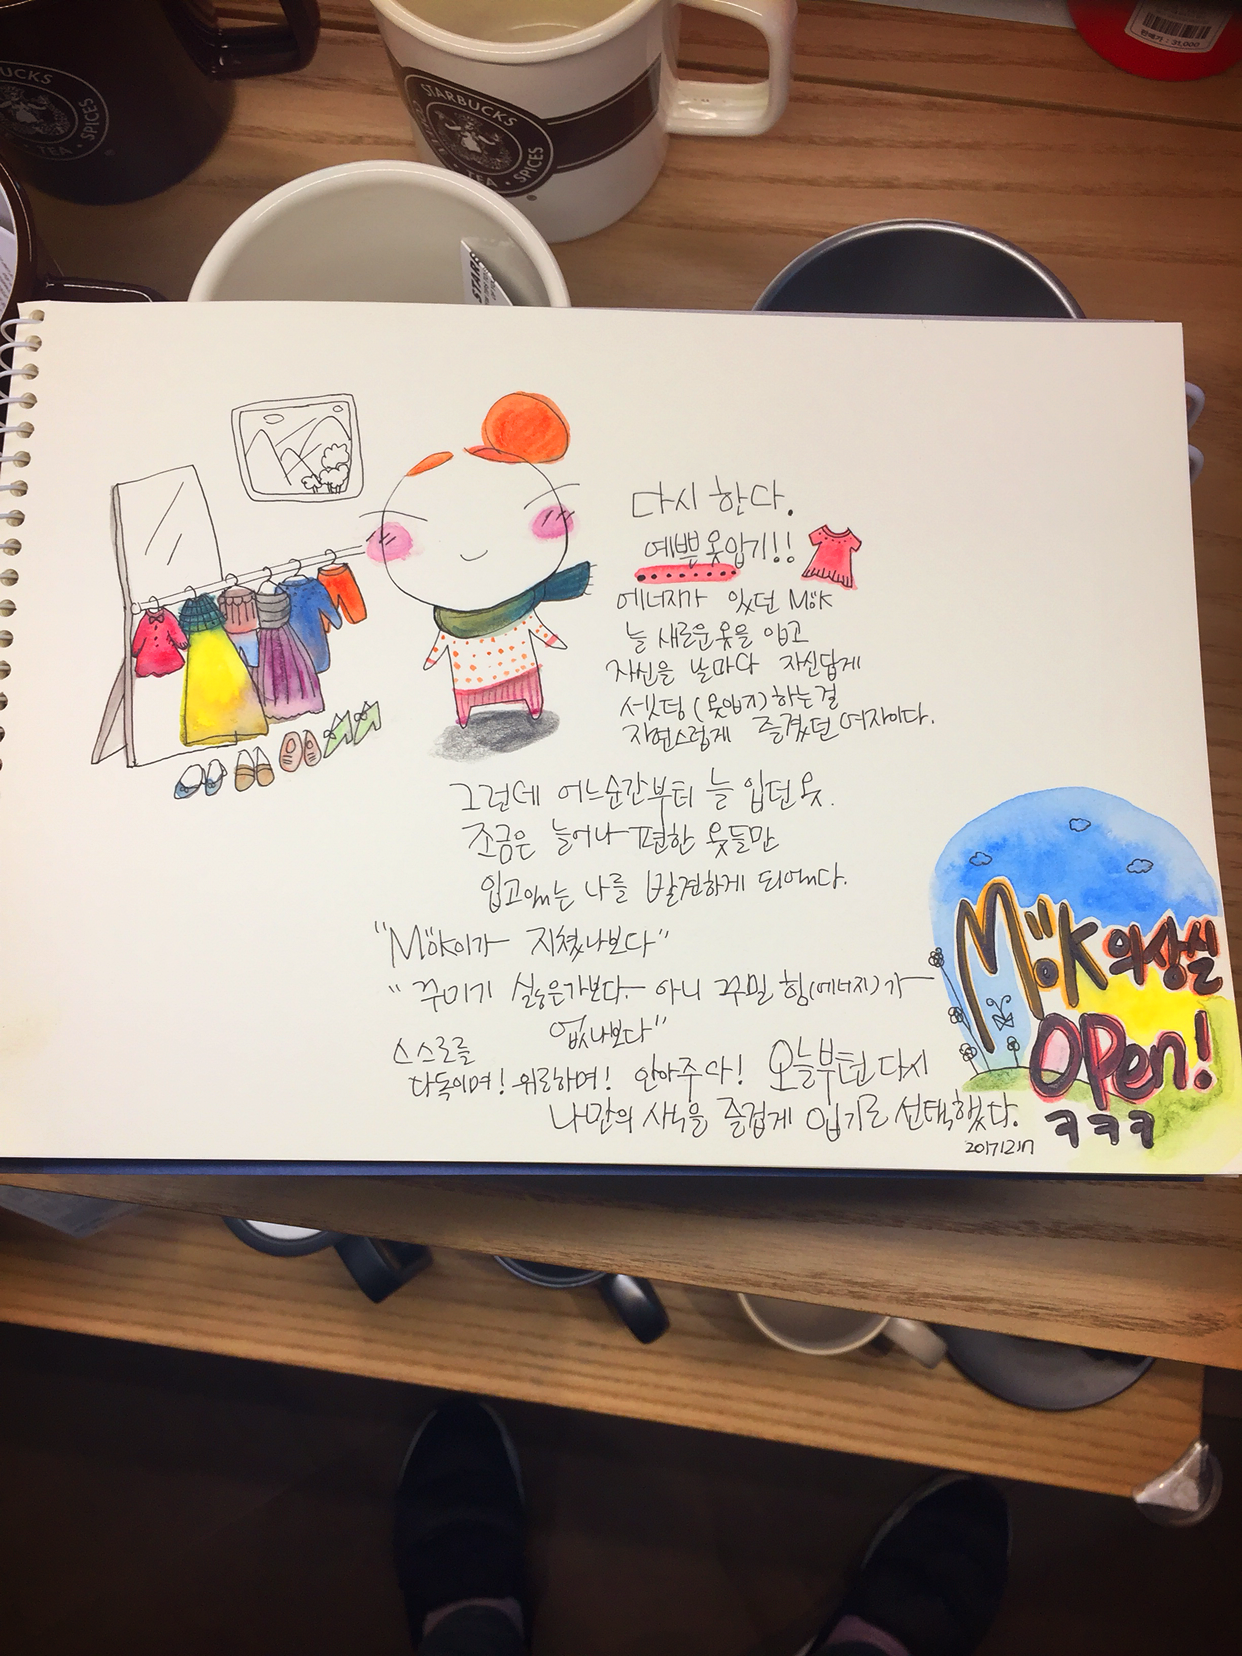 STARBUCKS
TEA • SPICES
STARBUCKS
TEA • SPICES
판매가 : 31,000
STAR
다시 한다.
예쁜옷입기!!
에너지가 있던 Mök
늘 새로운 옷을 입고
자신을 날마다 자신답게
셋팅 (옷입기) 하는걸
자연스럽게 즐겼던 여자이다.
그런데 어느순간부터 늘 입던 옷.
조금은 늘어나 편한 옷들만
입고있는 나를 발견하게 되었다.
"Mök이가 지쳤나보다"
"꾸미기 싫은가보다- 아니 꾸밀 힘(에너지)가
없나보다"
스스로를
다독이며! 위로하며! 안아주다! 오늘부턴 다시
나만의 사옷을 즐겁게 입기로 선택했다.
20171217
Mök 의상실
OPen!
ㅋㅋㅋ